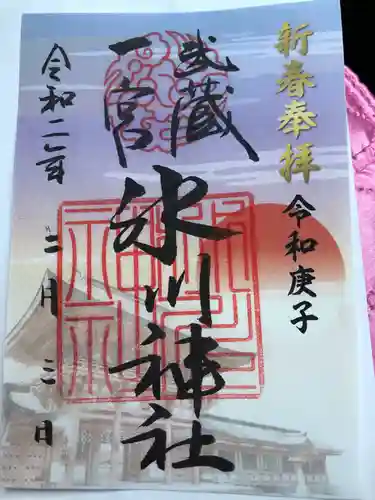 新春奉拝
令和庚子
武蔵
一宮
氷川神社
令和二年
二月
三日